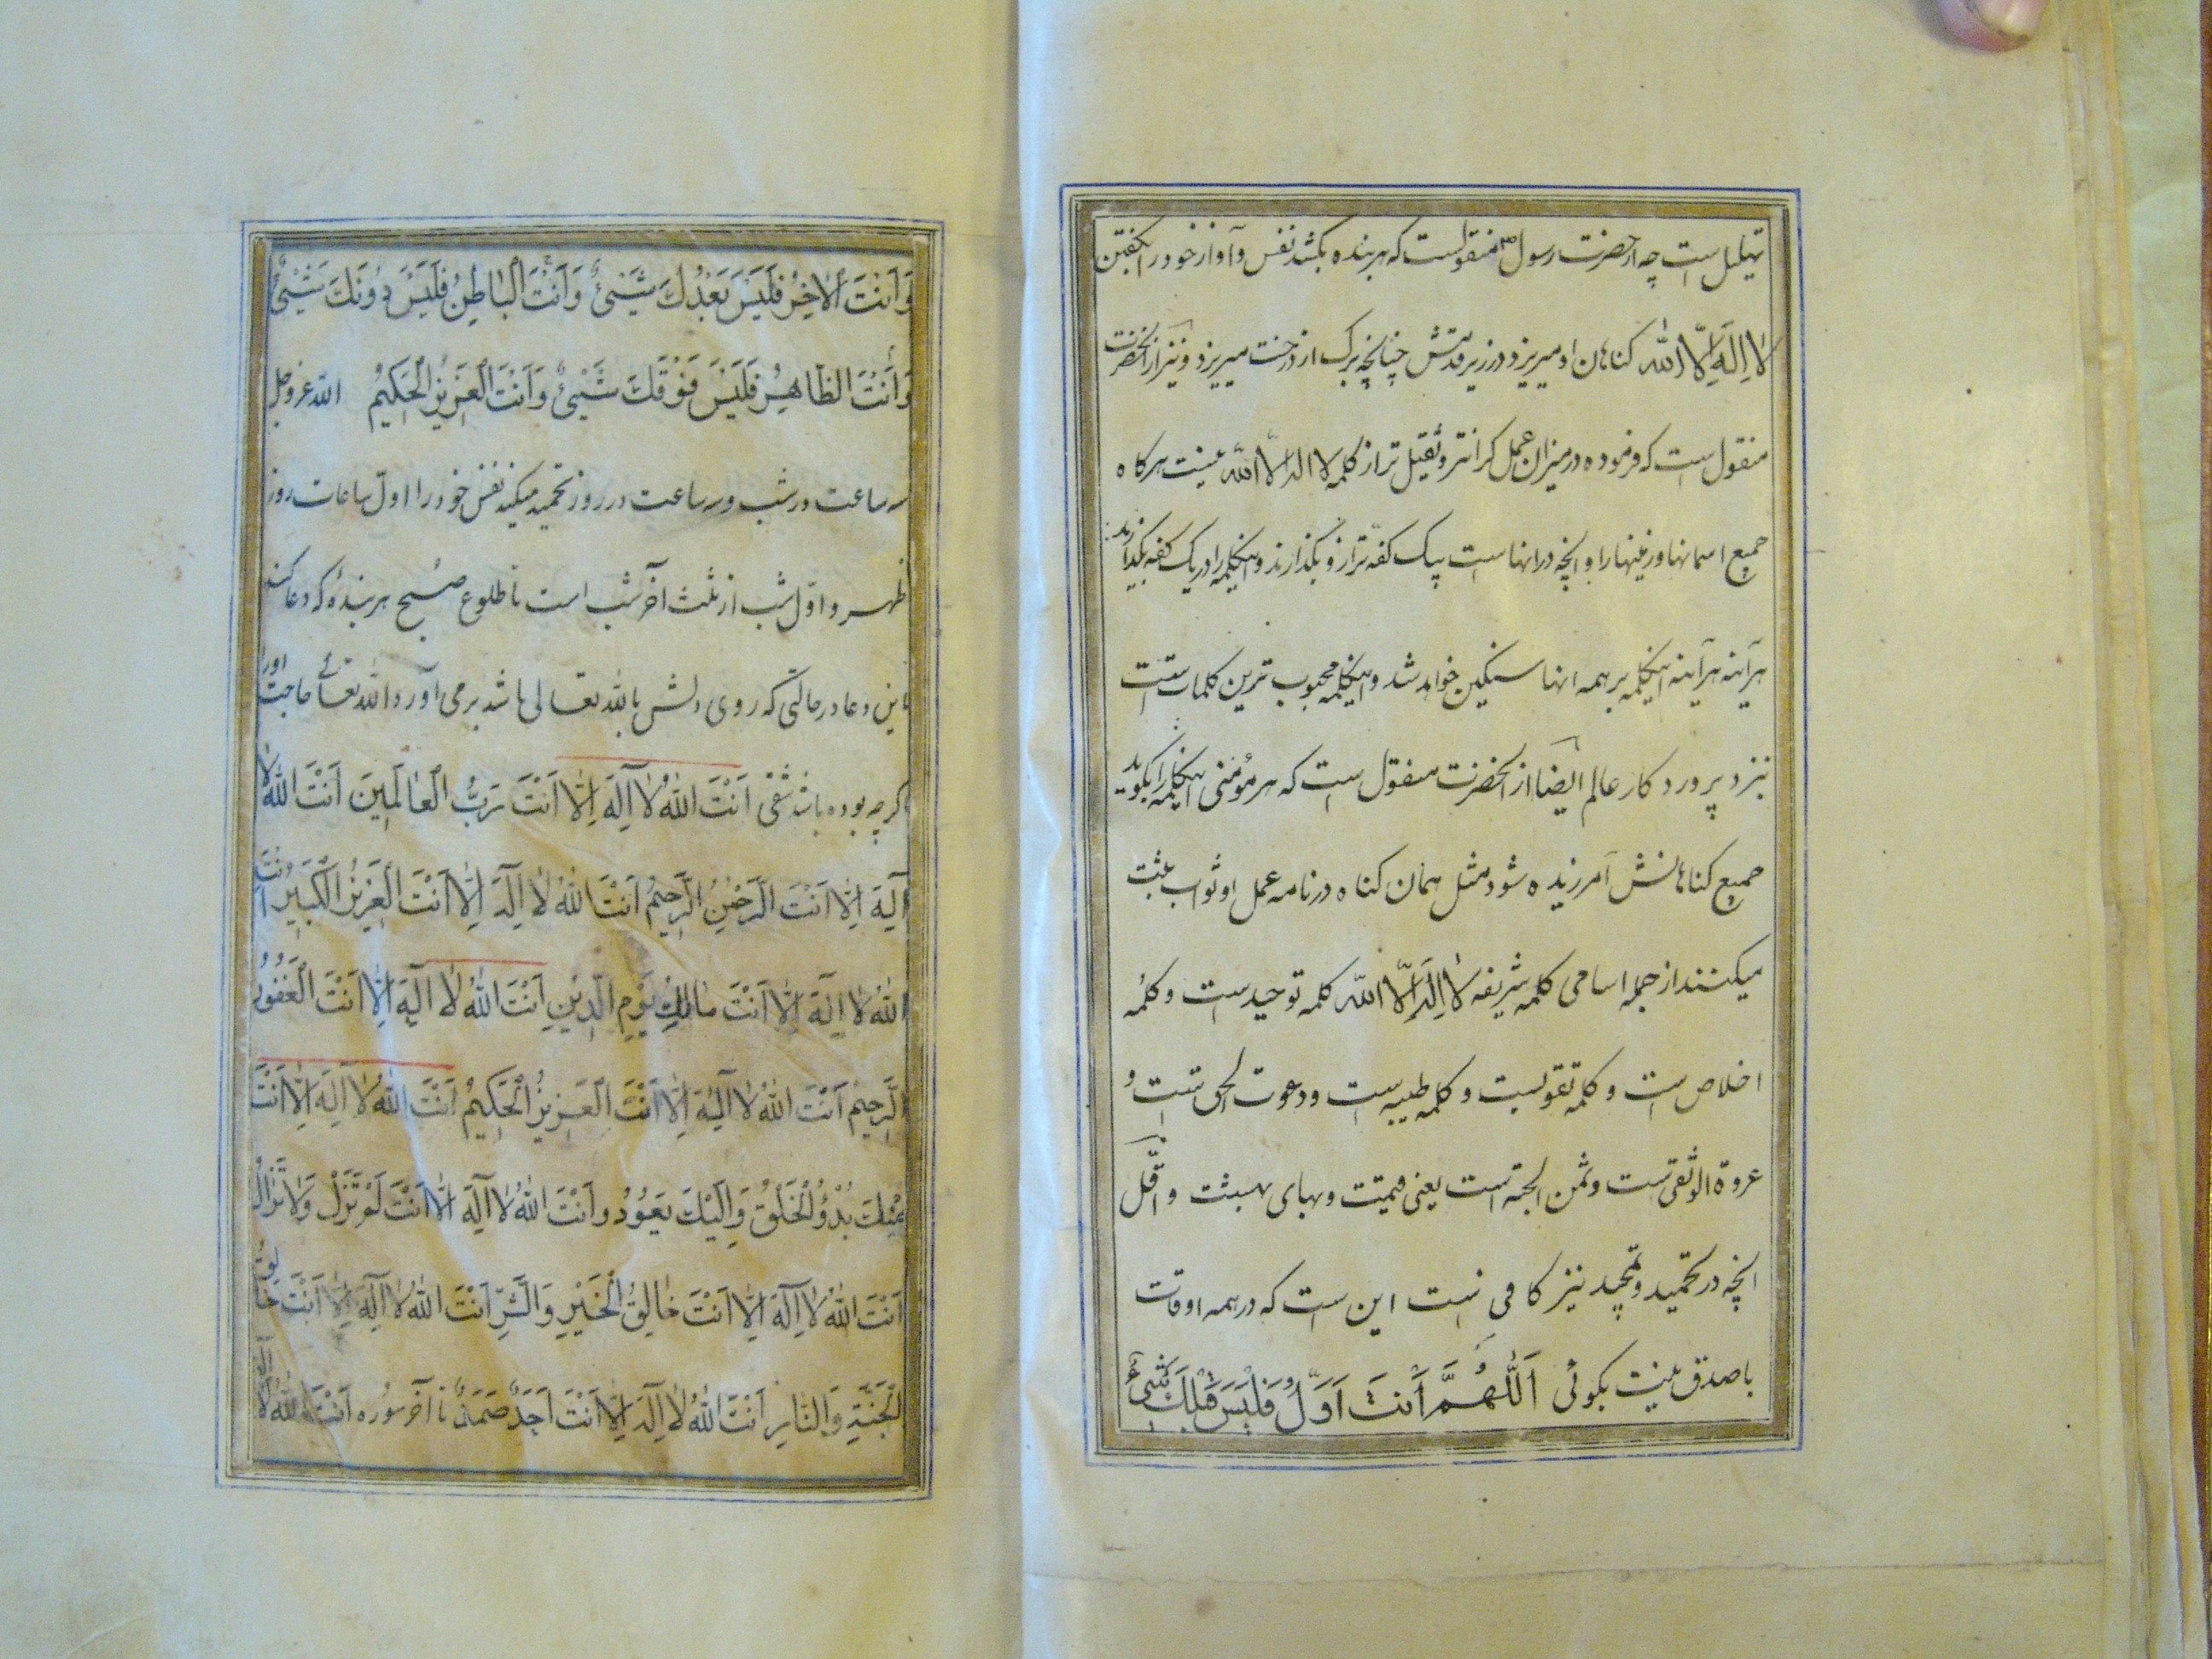 تهلیل است چه از حضرت رسول ص منقولست که هر بنده بکشد نفس و آواز خود را بگفتن
لَا اِلٰهَ اِلَّا اللّٰه کناهان او میریزد در زیر قدمش چنانچه برک از درخت میریزد و نیز از انحضرت
منقول است که فرموده در میزان عمل کرانتر و ثقیل تر از کلمه لا اله الا اللّه نیست هرکاه
جمیع اسمانها و زمینها را و انچه در انهاست بیک کفّه ترازو بکذارند و اینکلمه را در یک کفه بکذارند
هرآینه هرآینه اینکلمه بر همه انها سنکین خواهد شد و اینکلمه محبوب ترین کلمات است
نزد پروردکار عالم ایضا از انحضرت منقول است که هر مؤمنی اینکلمه را بکوید
جمیع کناهانش آمرزیده شود مثل همان کناه در نامه عمل او ثواب ثبت
میکنند از جمله اسامی کلمه شریفه لَا اِلٰهَ اِلَّا اللّه کلمه توحیدست و کلمه
اخلاص است و کلمه تقویست و کلمه طیبه است و دعوت الحق است و
عروة الوثقی است و ثمن الجنه است یعنی قیمت و بهای بهشت و اقّل
انچه در تحمید و تمجید نیز کافی است این است که در همه اوقات
با صدق نیت بکوئی اَللّٰهُمَّ اَنْتَ اَوَّلُ فَلَیْسَ قَبْلَكَ شَیْئٌ
وَاَنْتَ الْاٰخِرُ فَلَیْسَ بَعْدَكَ شَیْئٌ وَاَنْتَ الْبَاطِنُ فَلَیْسَ دُونَكَ شَیْئٌ
وَاَنْتَ الظَّاهِرُ فَلَیْسَ فَوْقَكَ شَیْئٌ وَاَنْتَ الْعَزِیزُ الْحَكِیمُ اللّه عز و جل
سه ساعت در شب و سه ساعت در روز تحمید میکند نفس خود را اول ساعات روز
ظهر و اوّل شب از ثلث آخر شب است تا طلوع صبح هر بندهٔ که دعا کند
باین دعا در حالتی که روی دلش بالله تعالی باشد برمی آورد الله تعالی حاجت اورا
کرچه بوده باشد شقی اَنْتَ اللّٰهُ لَا اِلٰهَ اِلَّا اَنْتَ رَبُّ الْعَالَمِینَ اَنْتَ اللّٰهُ لَا
اِلٰهَ اِلَّا اَنْتَ الرَّحْمٰنُ الرَّحِیمُ اَنْتَ اللّٰهُ لَا اِلٰهَ اِلَّا اَنْتَ الْعَزِیزُ الْكَبِیرُ اَنْتَ
اللّٰهُ لَا اِلٰهَ اِلَّا اَنْتَ مَالِكِ یَوْمِ الدِّینِ اَنْتَ اللّٰهُ لَا اِلٰهَ اِلَّا اَنْتَ الْغَفُورُ
الرَّحِیمُ اَنْتَ اللّٰهُ لَا اِلٰهَ اِلَّا اَنْتَ الْعَزِیزُ الْحَكِیمُ اَنْتَ اللّٰهُ لَا اِلٰهَ اِلَّا اَنْتَ
مِنْكَ بُدْؤُ الْخَلْقِ وَاِلَیْكَ یَعُودُ وَاَنْتَ اللّٰهُ لَا اِلٰهَ اِلَّا اَنْتَ لَمْ تَزَلْ وَلَا تَزَالُ
اَنْتَ اللّٰهُ لَا اِلٰهَ اِلَّا اَنْتَ خَالِقُ الْخَیْرِ وَالشَّرِّ اَنْتَ اللّٰهُ لَا اِلٰهَ اِلَّا اَنْتَ خَالِقُ
الْجَنَّةِ وَالنَّارِ اَنْتَ اللّٰهُ لَا اِلٰهَ اِلَّا اَنْتَ اَحَدٌ صَمَدٌ تا آخر سوره اَنْتَ اللّٰهُ لَا اِلٰهَ